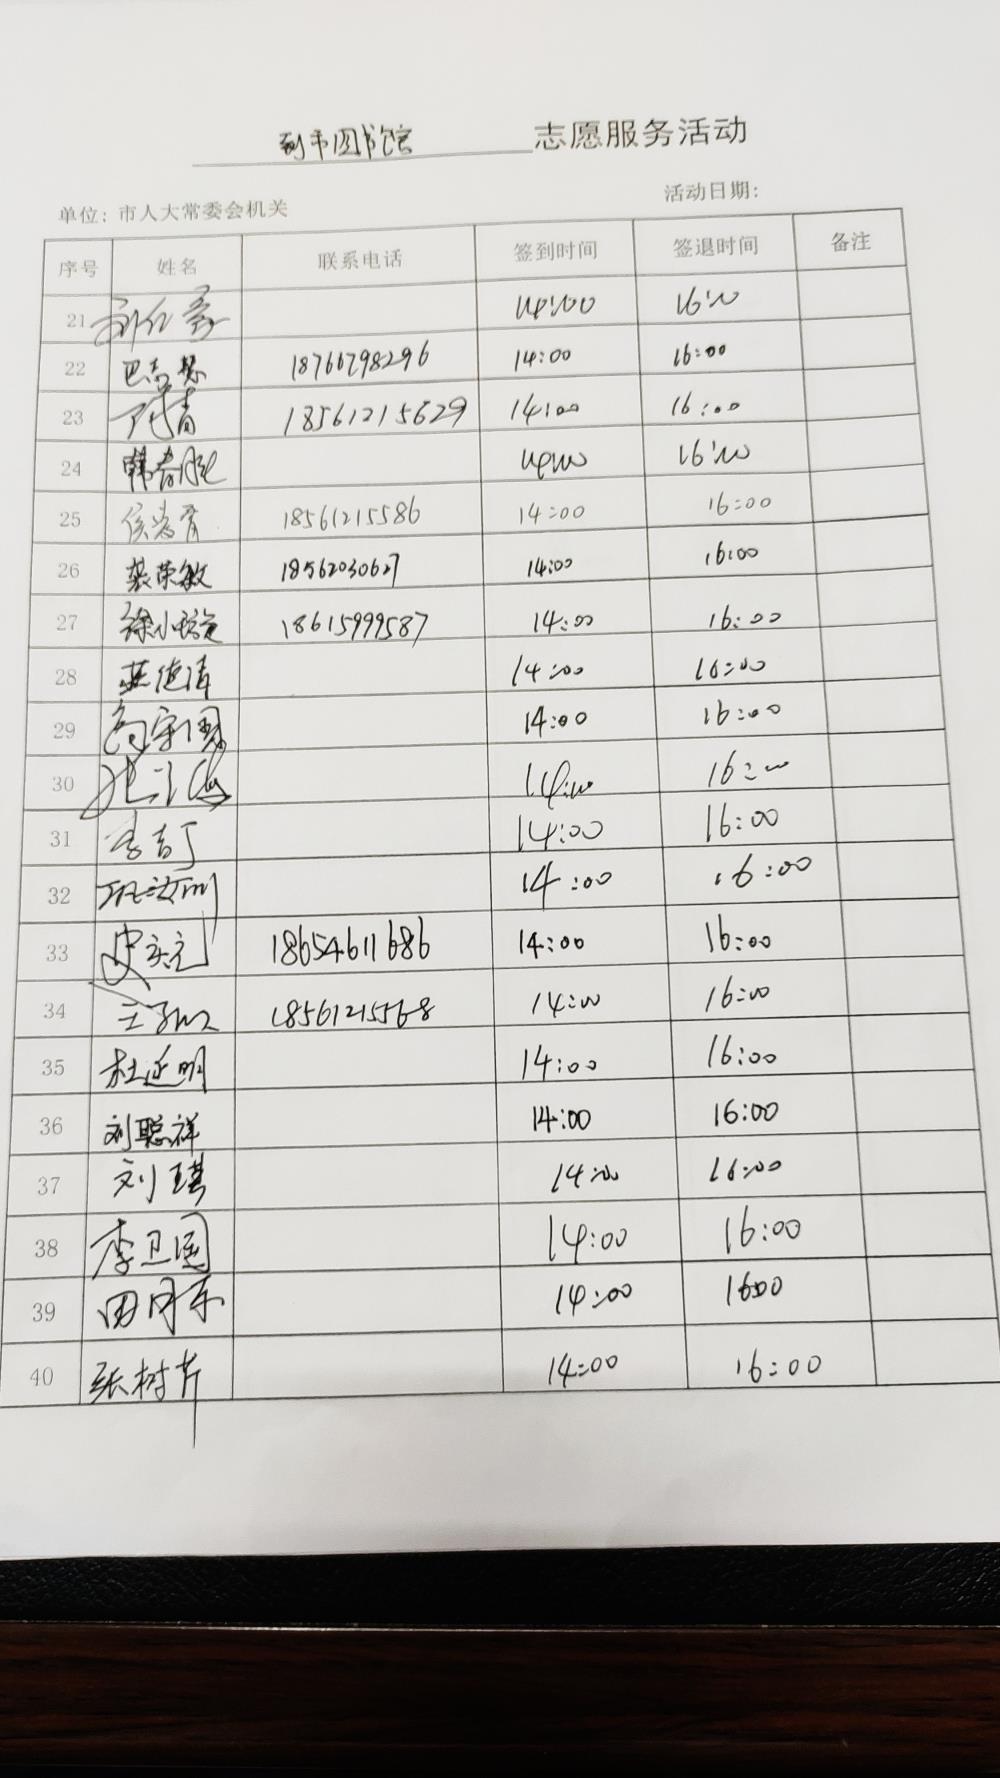 到市图书馆 志愿服务活动
单位：市人大常委会机关 活动日期：
序号 姓名 联系电话 签到时间 签退时间 备注
21 14:00 16:00
22 18766798296 14:00 16:00
23 18561215629 14:00 16:00
24 韩春胜 14:00 16:00
25 18561215586 14:00 16:00
26 荣敏 18562030627 14:00 16:00
27 徐小璇 18615999587 14:00 16:00
28 14:00 16:00
29 14:00 16:00
30 14:00 16:00
31 14:00 16:00
32 14:00 16:00
33 18654611686 14:00 16:00
34 18561215568 14:00 16:00
35 杜延明 14:00 16:00
36 刘聪祥 14:00 16:00
37 刘琪 14:00 16:00
38 李卫国 14:00 16:00
39 14:00 1600
40 张树芹 14:00 16:00